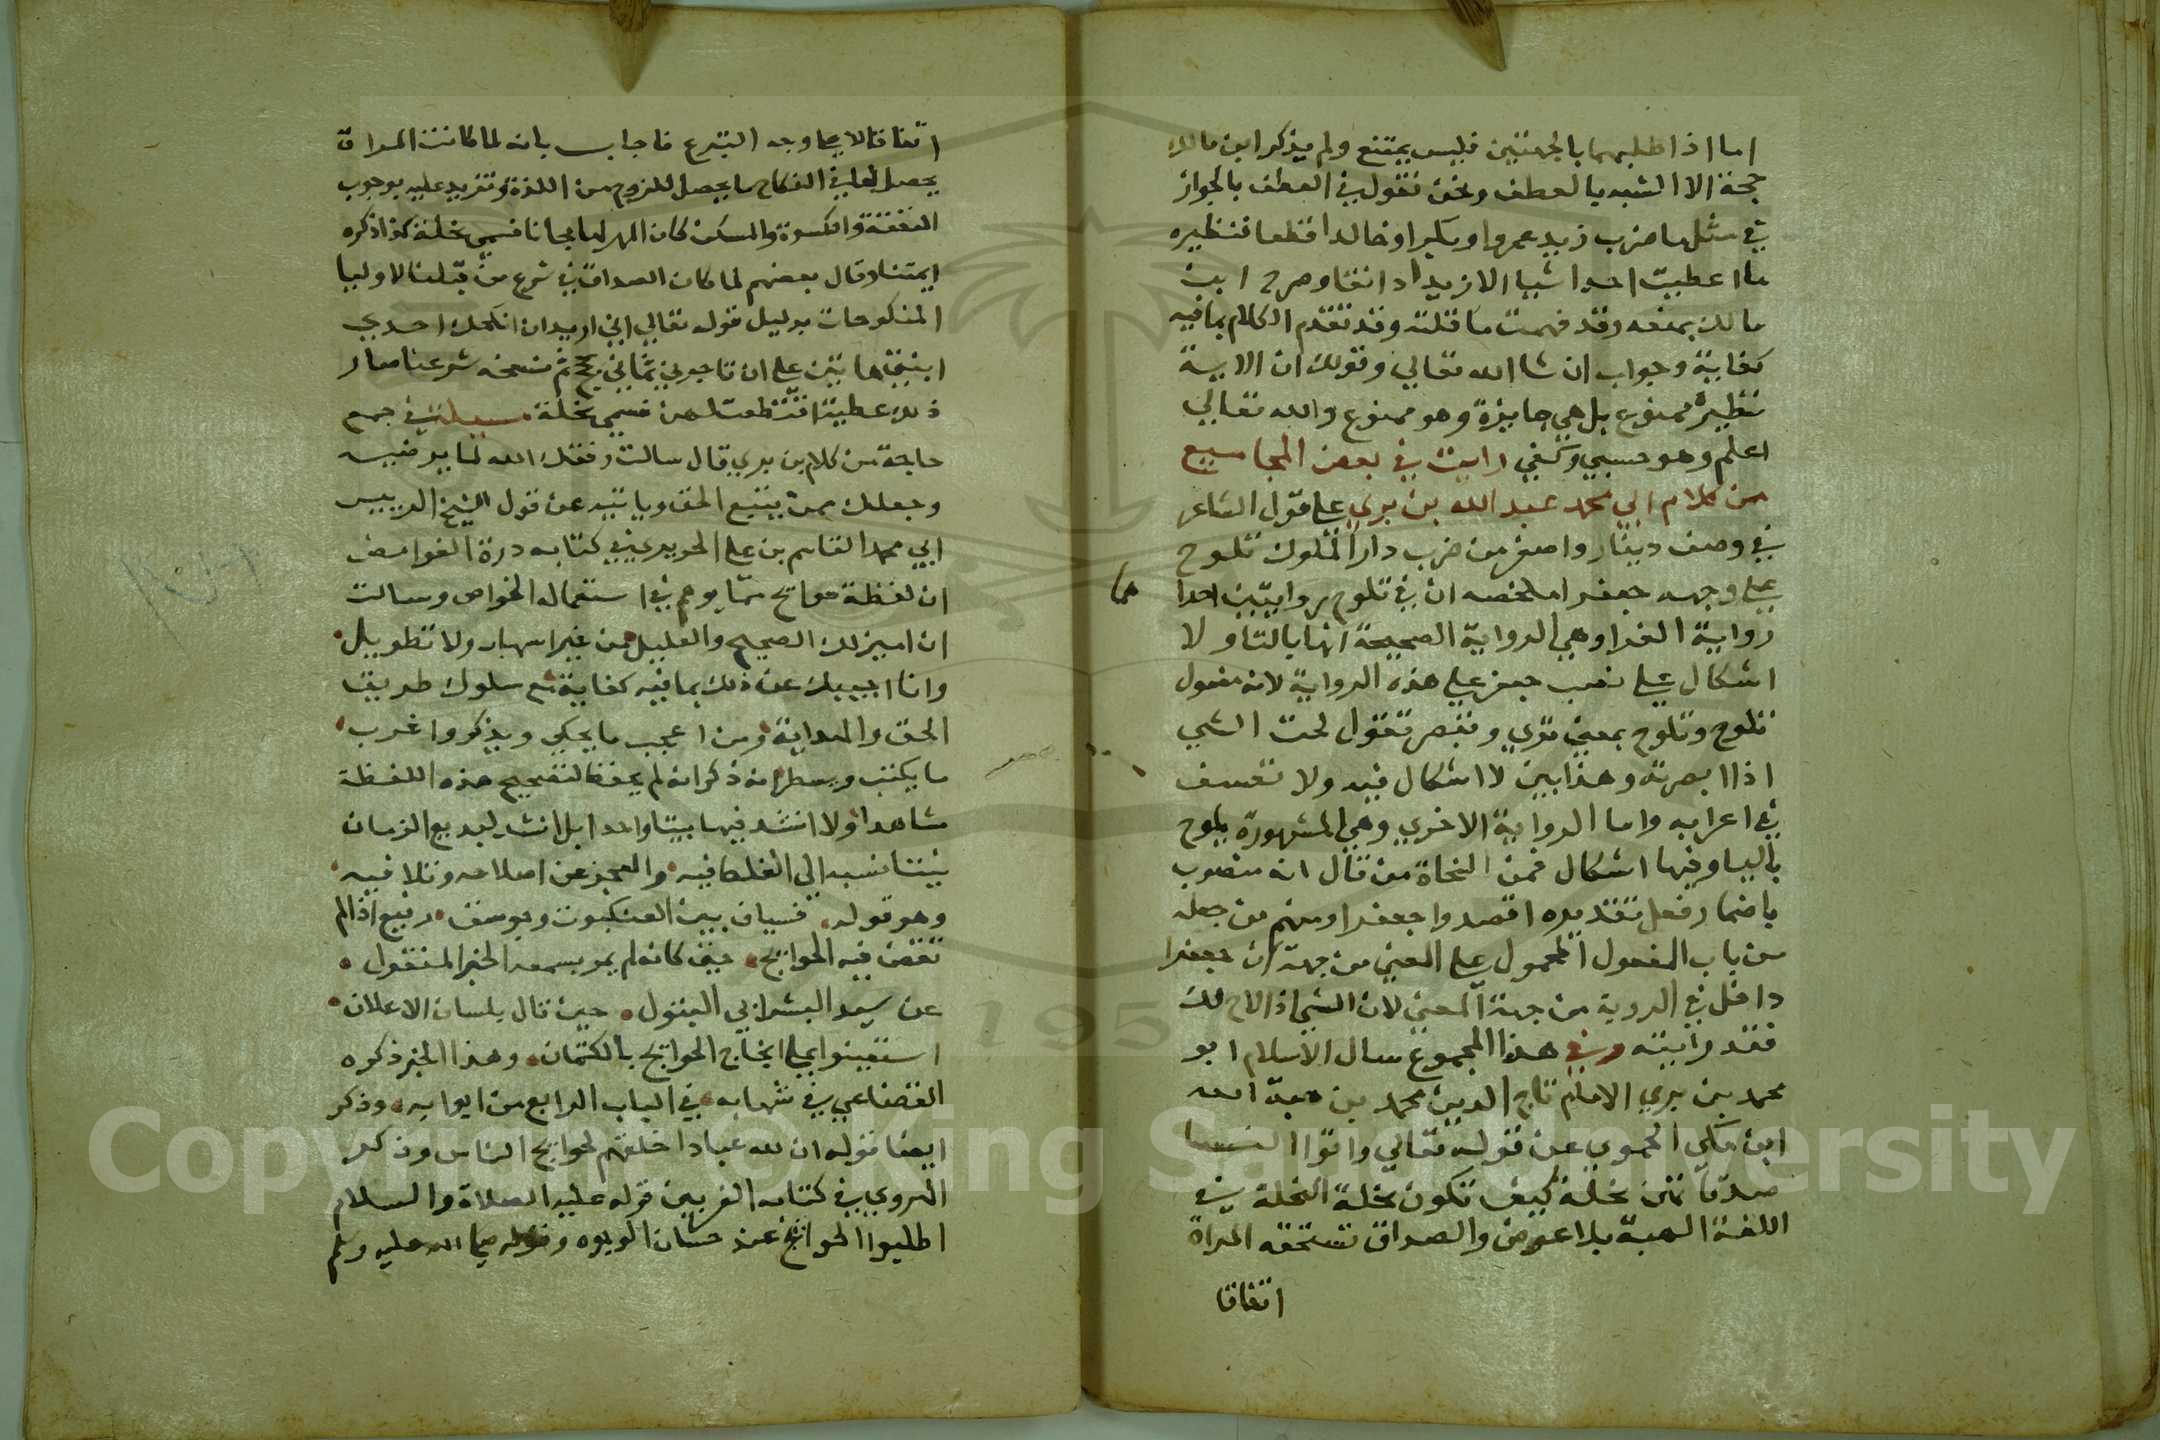 اما اذا طلبهما بالجهتين فليس يمتنع ولم يذكر ابن مالك
حجة الا الشبه بالعطف ونحن نقول في العطف بالجواز
في مثل ما ضرب زيد عمروا وبكرا وخالدا قطعا فنظيره
ما اعطيت احدا شيا الا زيدا دانقا وصرح ابن
مالك بمنعه وقد فهمت ما قلته وقد تقدم الكلام بما فيه
كفاية وجواب ان شا الله تعالي وقولك ان الاية
نظيره ممنوع بل هي جايزة وهو ممنوع والله تعالي
اعلم وهو حسبي وكفي رايت في بعض المجاميع
من كلام ابي محمد عبد الله بن بري علي قول الشاعر
في وصف دينار واصفر من ضرب دار الملوك تلوح
علي وجهه جعفرا ملخصه ان في تلوح روايتين احدا
هما
رواية الفرا وهي الرواية الصحيحة انها بالتا ولا
اشكال علي نصب جعفر علي هذه الرواية لانه مفعول
تلوح وتلوح بمعني تري وتبصر تقول لحت الشي
اذا ابصرته وهذا بين لا اشكال فيه ولا تعسف
في اعرابه واما الرواية الاخري وهي المشهورة يلوح
باليا وفيها اشكال فمن النحاة من قال انه منصوب
باضمار فعل تقديره اقصدوا جعفرا ومنهم من جعله
من باب المفعول المحمول علي المعني من جهة ان جعفرا
داخل في الروية من جهة المعني لان الشي اذا لاح لك
فقد رايته وفي هذا المجموع سال الاسلام ابو
محمد بن بري الامام تاج الدين محمد بن هبة الله
ابن مكي الحموي عن قوله تعالي واتوا النسا
صدقاتهن نحلة كيف تكون نحلة النحلة في
اللغة الهبة بلا عوض والصداق تستحقه المراة
اتفاقا
اتفاقا لا علي وجه التبرع فاجاب بانه لما كانت المراة
يحصل لها في النكاح ما يحصل للزوج من اللذة وتزيد عليه بوجوب
النفقة والكسوة والمسكن كان المهر لها مجانا فسمي نحلة كذا ذكره
ايمتنا وقال بعضهم لما كان الصداق في شرع من قبلنا لاوليا
المنكوحات بدليل قوله تعالي اني اريد ان انكحك احدي
ابنتي هاتين علي ان تاجرني ثماني حجج ثم نسخه شرعنا صار
ذلك عطية اقتطعت لهن فسمي نحلة مسيلة في جمع
حاجة من كلام بن بري قال سالت وفقك الله لما يرضيه
وجعلك ممن يتبع الحق وياتيه عن قول الشيخ الرييس
ابي محمد القاسم بن علي الحريري في كتابه درة الغواص
ان لفظة حوايج مما يوهم في استعماله الخواص وسالت
ان اميز لك الصحيح والعليل من غير اسهاب ولا تطويل
وانا اجيبك عن ذلك بما فيه كفاية مع سلوك طريق
الحق والهداية ومن اعجب ما يحكي ويذكر واغرب
ما يكتب ويسطر انه ذكر انه لم يحفظ لتصحيح هذه اللفظة
شاهدا ولا انشد فيها بيتا واحدا بل انشد لبديع الزمان
بيتا نسبه الي الغلط فيه والعجز عن اصلاحه وتلافيه
وهو قوله فسيان بيت العنكبوت وجوسق رفيع اذا لم
تقض فيه الحوايج حتي كانه لم يمر بسمعه الخبر المنقول
عن سيد البشر ابي البتول حين قال بلسان الاعلان
استعينوا علي انجاح الحوايج بالكتمان وهذا الخبر ذكره
القضاعي في شهابه في الباب الرابع من ابوابه وذكر
ايضا قوله ان لله عبادا خلقهم لحوايج الناس وذكر
الهروي في كتاب الغريبين قوله عليه الصلاة والسلام
اطلبوا الحوايج عند حسان الوجوه وقوله صلي الله عليه وسلم
Copyright © King Saud University
1957